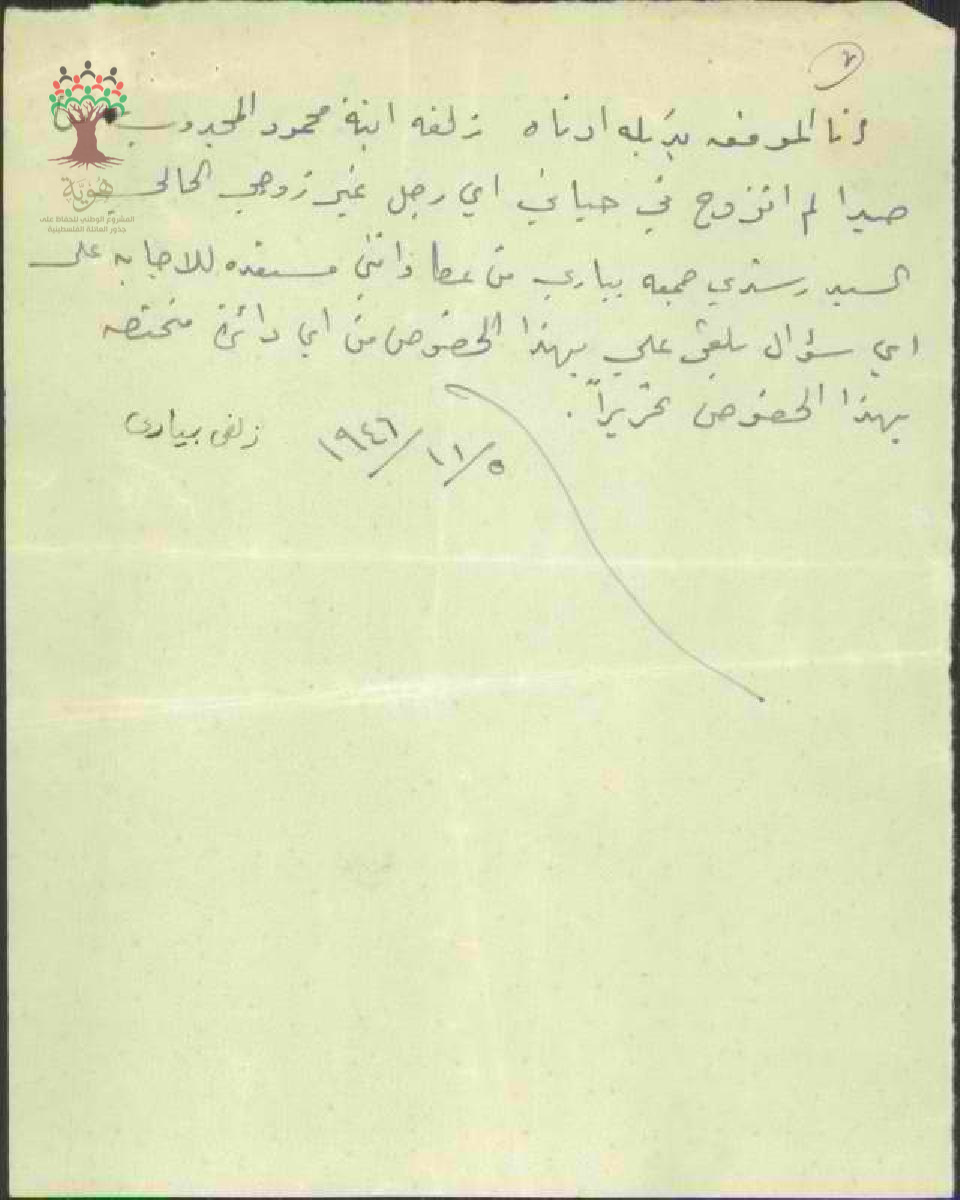 ٧
أنا الموقعه بذيله ادناه زلفه ابنة محمود المجدوب من
صيدا لم اتزوج في حياتي اي رجل غير زوجي الحالي
السيد رشدي جمعه بياري من عكا وانني مستعده للاجابه على
اي سؤال يلقى علي بهذا الخصوص من اي دائرة مختصه
بهذا الخصوص تحريراً.
٥/١١/١٩٤٦ زلفى بيارى
هوية
المشروع الوطني للحفاظ على
جذور العائلة الفلسطينية